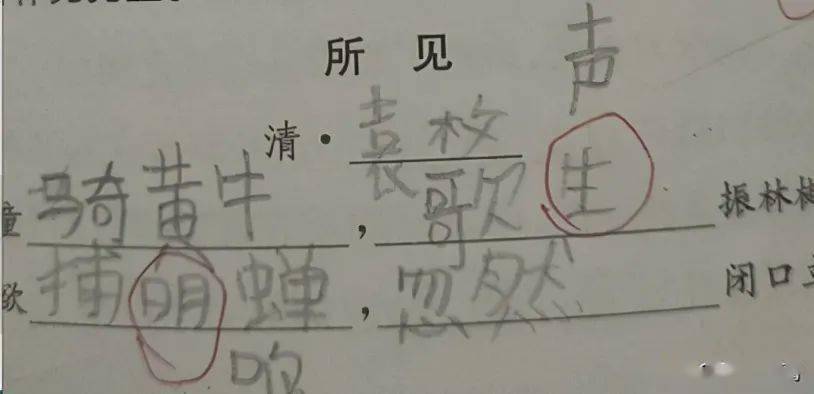 所 见
声
清·袁枚
童骑黄牛，歌生振林
欲捕明蝉，忽然闭口
鸣